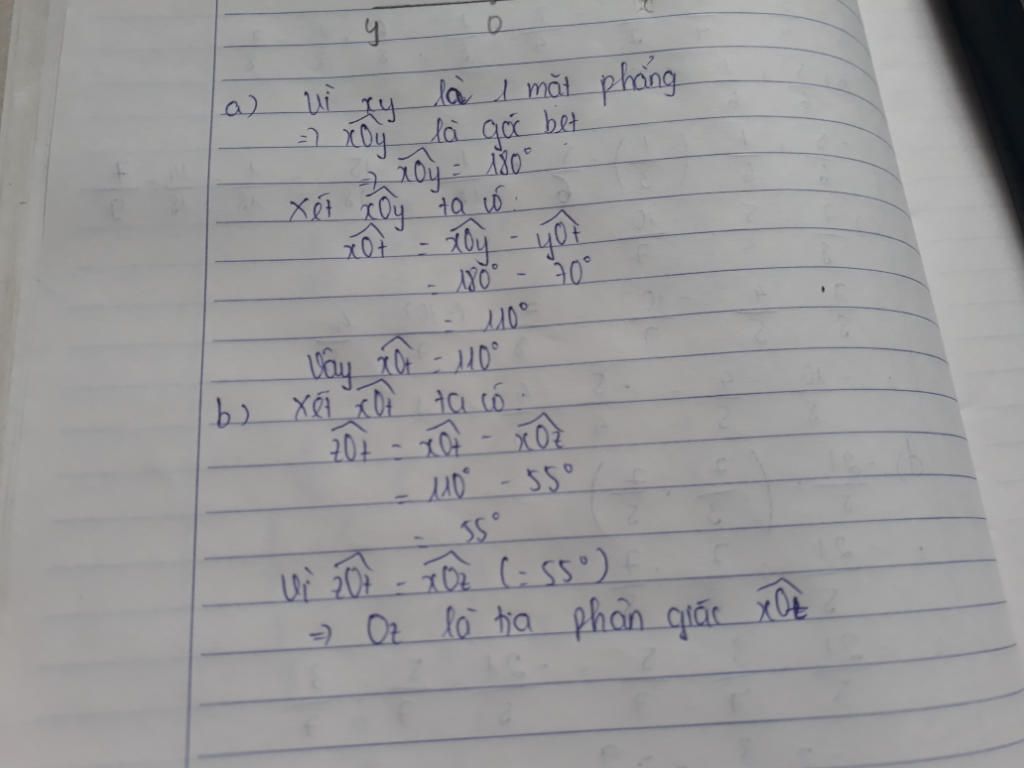 y O x
a) Vì xy là 1 mặt phẳng
=> xÔy là góc bẹt
=> xÔy = 180°
Xét xÔy ta có:
xÔt = xÔy - yÔt
= 180° - 70°
= 110°
Vậy xÔt = 110°
b) Xét xÔt ta có:
zÔt = xÔt - xÔz
= 110° - 55°
= 55°
Vì zÔt = xÔz (= 55°)
=> Oz là tia phân giác xÔt